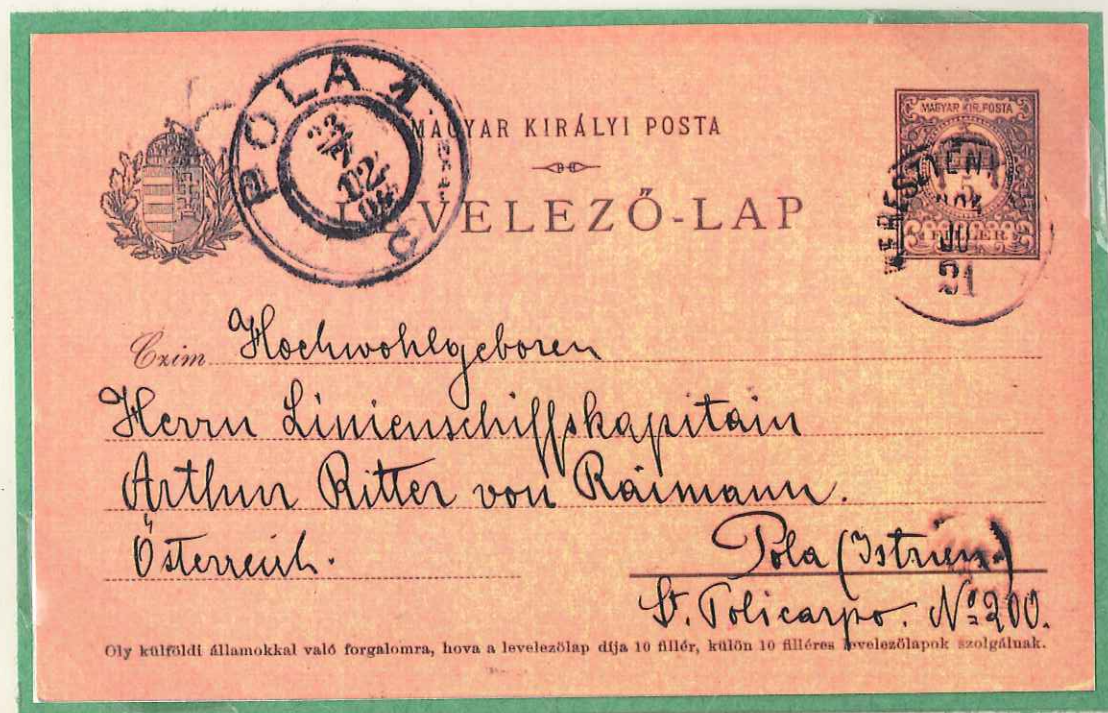 MAGYAR KIRÁLYI POSTA
LEVELEZŐ-LAP
POLA 1
12
C
MAGYAR KIR. POSTA
5
FILLÉR
21
Czim Hochwohlgeboren
Herrn Linienschiffskapitain
Arthur Ritter von Raimann.
Österreich.
Pola (Istrien)
St. Policarpo. No 200.
Oly külföldi államokkal való forgalomra, hova a levelezőlap díja 10 fillér, külön 10 filléres levelezőlapok szolgálnak.